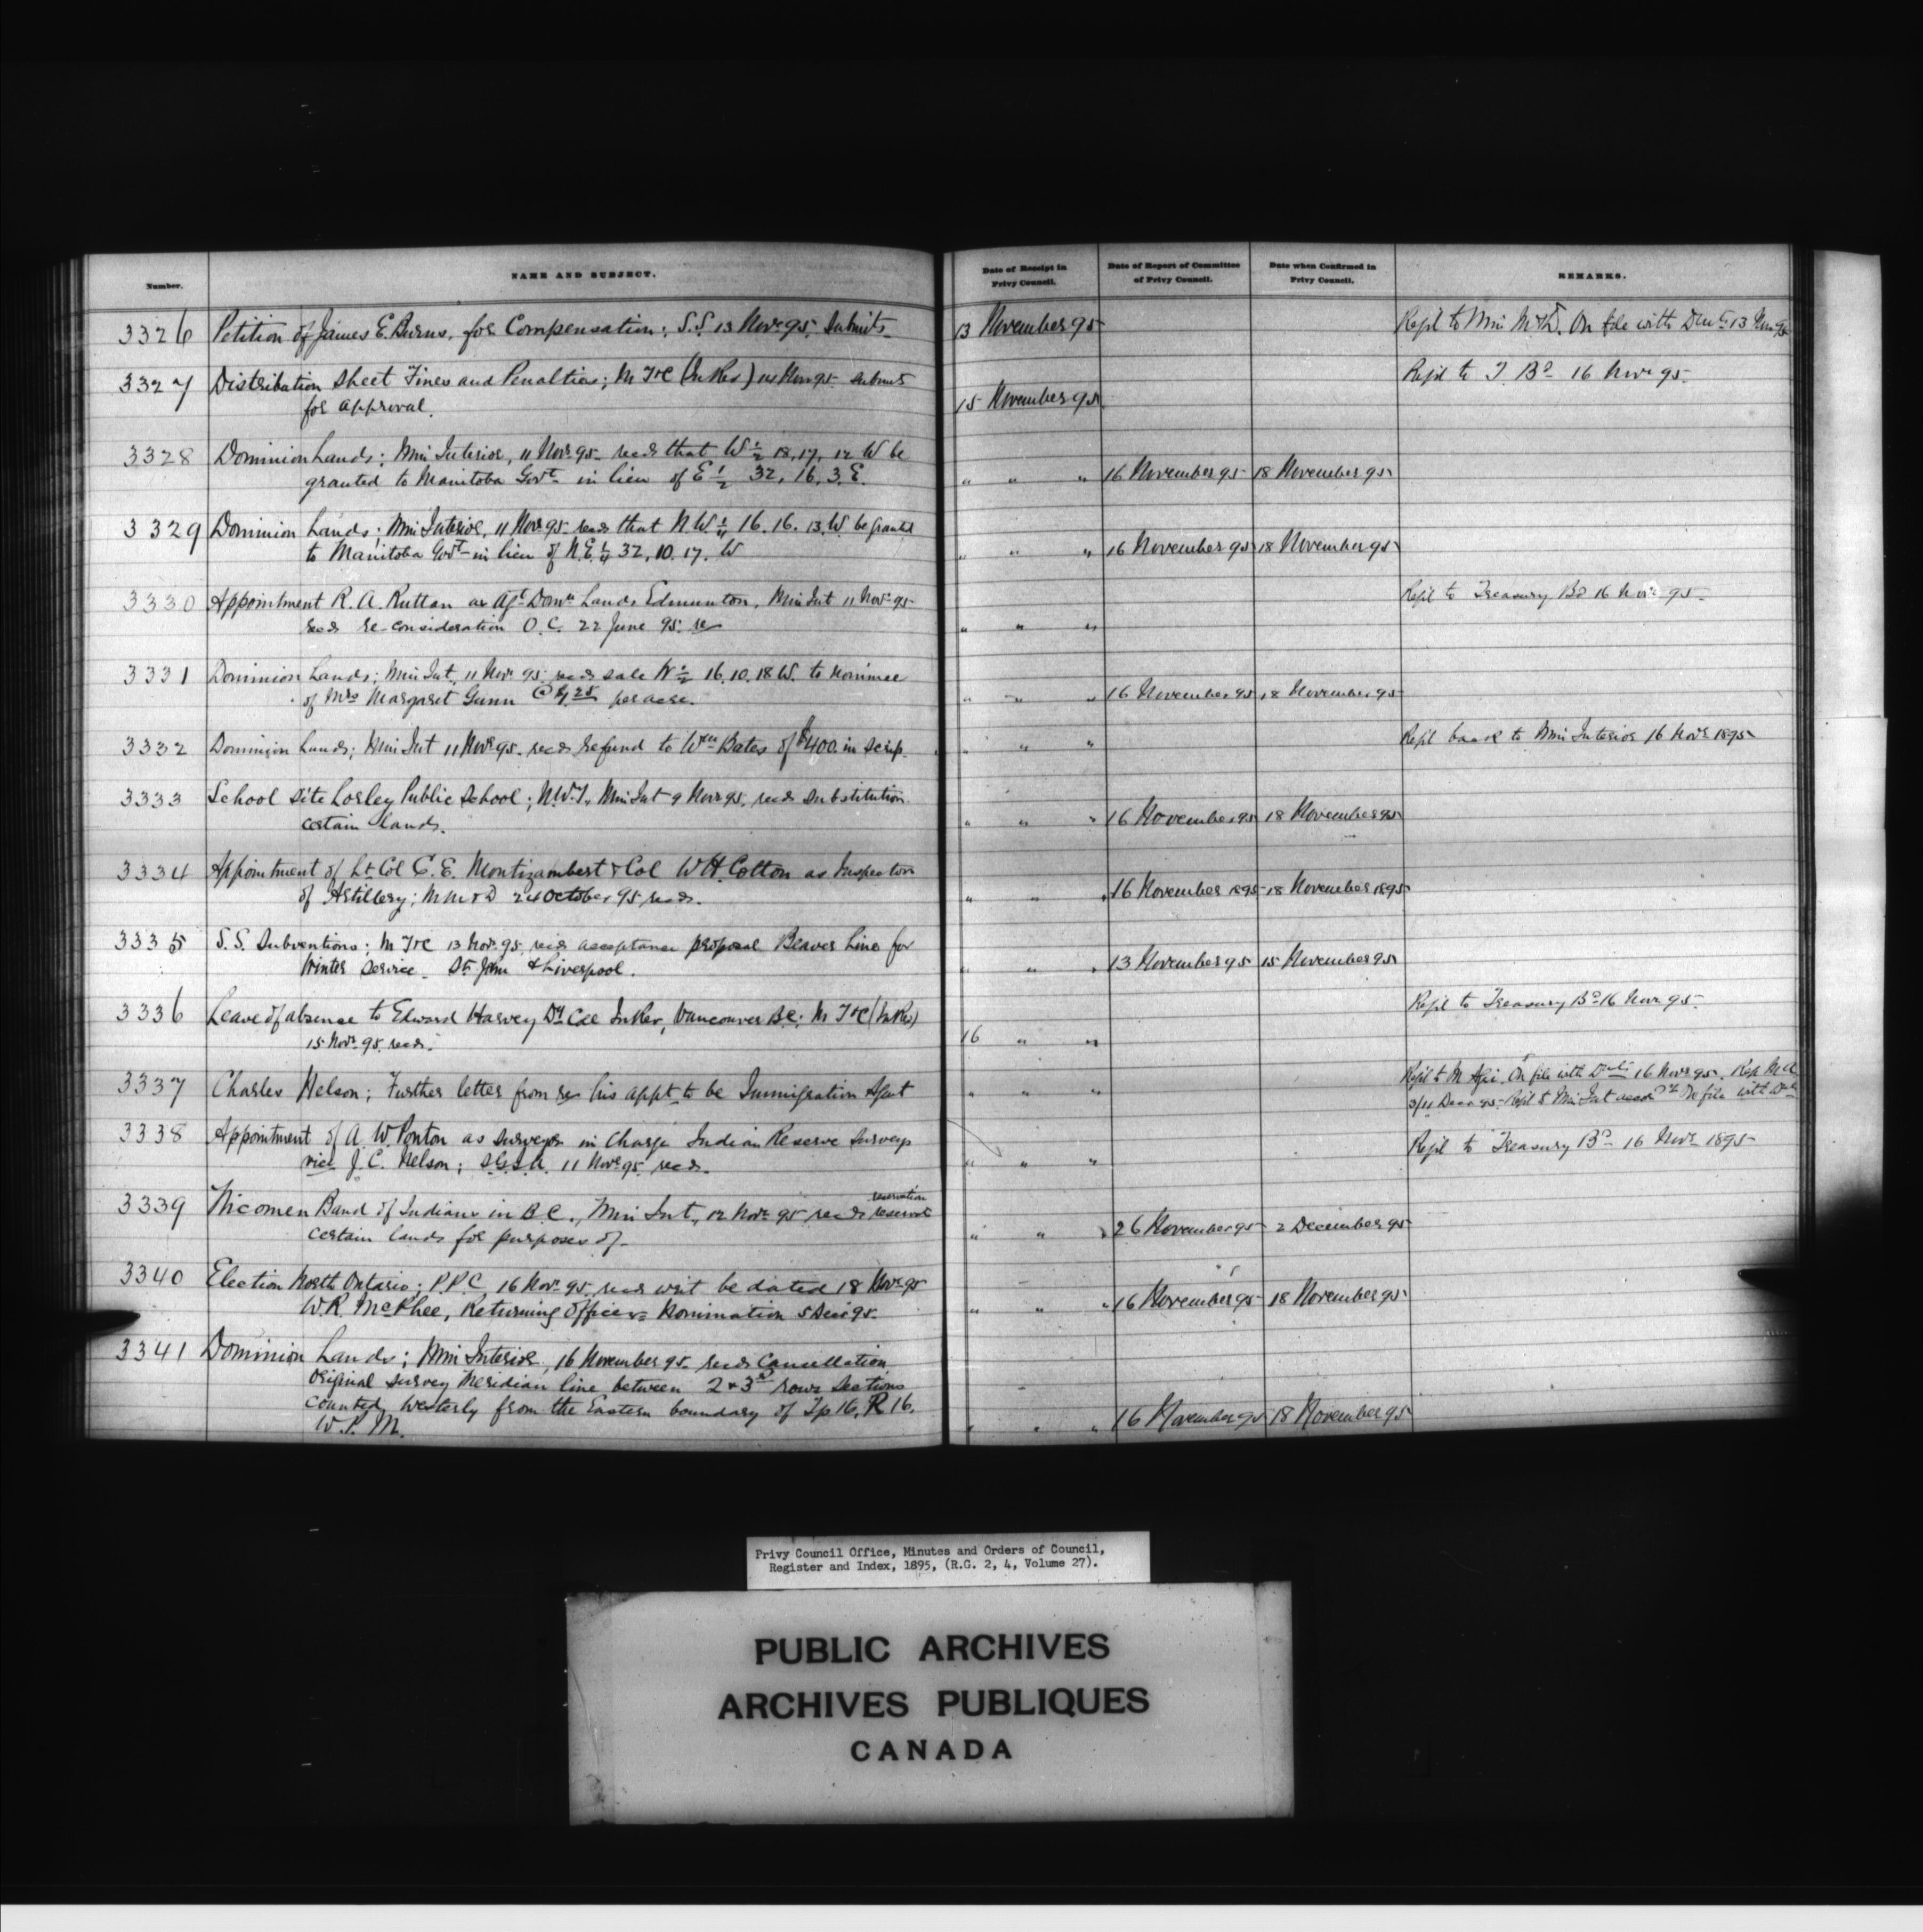 Number.
NAME AND SUBJECT.
Date of Receipt in Privy Council.
Date of Report of Committee of Privy Council.
Date when Confirmed in Privy Council.
REMARKS.
3326 Petition of James E. Burns, for Compensation; S.S. 13 Novr 95. Submits 13 November 95 Refd to Min M&D. On file with 13 Nov 95
3327 Distribution Sheet Fines and Penalties; M T&C (In Rev) 14 Nov 95 submits Refd to T. Bd 16 Novr 95
for approval. 15 November 95
3328 Dominion Lands; Min Interior, 11 Novr 95 recds that W 1/2 18, 17, 12 W be
granted to Manitoba Govt in lieu of E 1/2 32, 16, 3. E. " " " 16 November 95 18 November 95
3329 Dominion Lands; Min Interior, 11 Novr 95 recds that N W 1/4 16. 16. 13. W. be granted
to Manitoba Govt in lieu of N.E. 1/4 32, 10. 17. W " " " 16 November 95 18 November 95
3330 Appointment R. A. Ruttan as Agt Domn Lands Edmunton, Min Int 11 Novr 95 Refd to Treasury Bd 16 Novr 95
recds re-consideration O.C. 22 June 95. re " " "
3331 Dominion Lands; Min Int, 11 Novr 95. recds sale W 1/2 16. 10. 18 W. to nominee
of Mrs Margaret Gunn @ per acre. " " " 16 November 95 18 November 95
3332 Dominion Lands; Min Int 11 Novr 95. recds refund to Wm Bates of $400. in scrip. " " " Refd back to Min Interior 16 Novr 1895
3333 School Site Lorley Public School; N.W.T. Min Int 9 Novr 95. recds substitution
certain lands. " " " 16 November 95 18 November 95
3334 Appointment of Lt Col C. E. Montizambert & Col W H. Cotton as Inspectors
of Artillery; M M & D 24 October 95 recds. " " " 16 November 1895 18 November 1895
3335 S.S. Subventions; M T&C 13 Novr 95. recds acceptance proposal Beaver Line for
Winter Service. St John & Liverpool. " " " 13 November 95 15 November 95
3336 Leave of absence to Edward Harvey Dy Coll In Rev, Vancouver B.C; M T&C (In Rev) Refd to Treasury Bd 16 Novr 95
15 Novr 95. recds. 16 " "
3337 Charles Nelson; Further letter from re his appt to be Immigration Agent " " " Refd to M Agri. On file with 16 Novr 95. Rep M A
Decr 95. Refd to Min Int On file with
3338 Appointment of A. W. Ponton as Surveyor in Charge Indian Reserve Surveys Refd to Treasury Bd 16 Novr 1895
vice J. C. Nelson; S.G.I.A. 11 Novr 95 recds. " " "
3339 Nicomen Band of Indians in B.C., Min Int, 12 Novr 95 recds reservation
certain lands for purposes of " " " 26 November 95 2 December 95
3340 Election North Ontario; P.P.C. 16 Novr 95. recds writ be dated 18 Novr 95
W.R. McPhee, Returning Officer = Nomination 5 Decr 95. " " " 16 November 95 18 November 95
3341 Dominion Lands; Min Interior, 16 November 95. recds Cancellation
original survey Meridian line between 2 & 3rd rows Sections
counted Westerly from the Eastern boundary of Tp 16. R 16.
W. P. M. " " " 16 November 95 18 November 95
Privy Council Office, Minutes and Orders of Council,
Register and Index, 1895, (R.G. 2, 4, Volume 27).
PUBLIC ARCHIVES
ARCHIVES PUBLIQUES
CANADA